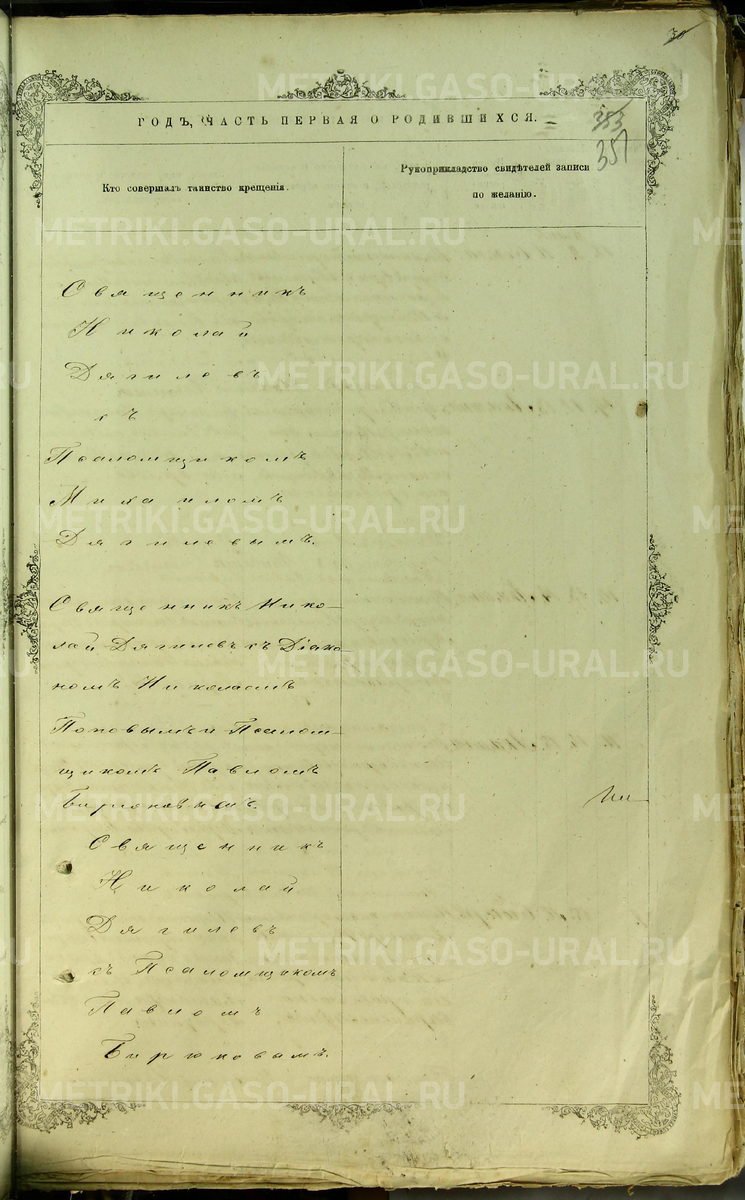 ГОДЪ, ЧАСТЬ ПЕРВАЯ О РОДИВШИХСЯ.
353
351
Кто совершалъ таинство крещенія.
Рукоприкладство свидѣтелей записи
по желанію.
Священникъ
Николай
Дягилевъ
съ
Псаломщикомъ
Михаиломъ
Дягилевымъ.
Священникъ Нико-
лай Дягилевъ съ Діако-
номъ Николаемъ
Поповымъ и Псалом-
щикомъ Павломъ
Бирюковымъ.
Священникъ
Николай
Дягилевъ
съ Псаломщикомъ
Павломъ
Бирюковымъ.
METRIKI.GASO-URAL.RU